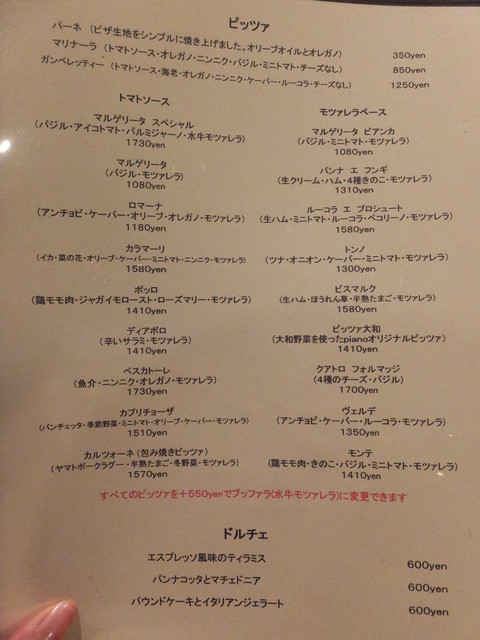 ピッツァ
パーネ （ピザ生地をシンプルに焼き上げました。オリーブオイルとオレガノ） 350yen
マリナーラ （トマトソース・オレガノ・ニンニク・バジル・ミニトマト・チーズなし） 850yen
ガンベレッティー （トマトソース・海老・オレガノ・ニンニク・ケーパー・ルーコラ・チーズなし） 1250yen
トマトソース
マルゲリータ スペシャル
（バジル・アイコトマト・パルミジャーノ・水牛モツァレラ）
1730yen
マルゲリータ
（バジル・モツァレラ）
1080yen
ロマーナ
（アンチョビ・ケーパー・オリーブ・オレガノ・モツァレラ）
1180yen
カラマーリ
（イカ・菜の花・オリーブ・ケーパー・ミニトマト・ニンニク・モツァレラ）
1580yen
ポッロ
（鶏モモ肉・ジャガイモロースト・ローズマリー・モツァレラ）
1410yen
ディアボロ
（辛いサラミ・モツァレラ）
1410yen
ペスカトーレ
（魚介・ニンニク・オレガノ・モツァレラ）
1730yen
カプリチョーザ
（パンチェッタ・季節野菜・ミニトマト・オリーブ・ケーパー・モツァレラ）
1510yen
カルツォーネ（包み焼きピッツァ）
（ヤマトポークラグー・半熟たまご・冬野菜・モツァレラ）
1570yen
モツァレラベース
マルゲリータ ビアンカ
（バジル・ミニトマト・モツァレラ）
1080yen
パンナ エ フンギ
（生クリーム・ハム・4種きのこ・モツァレラ）
1310yen
ルーコラ エ プロシュート
（生ハム・ミニトマト・ルーコラ・ペコリーノ・モツァレラ）
1580yen
トンノ
（ツナ・オニオン・ケーパー・ミニトマト・モツァレラ）
1300yen
ビスマルク
（生ハム・ほうれん草・半熟たまご・モツァレラ）
1580yen
ピッツァ大和
（大和野菜を使ったpianoオリジナルピッツァ）
1410yen
クアトロ フォルマッジ
（4種のチーズ・バジル）
1700yen
ヴェルデ
（アンチョビ・ケーパー・ルーコラ・モツァレラ）
1350yen
モンテ
（鶏モモ肉・きのこ・バジル・ミニトマト・モツァレラ）
1410yen
すべてのピッツァを＋550yenでブッファラ(水牛モツァレラ)に変更できます
ドルチェ
エスプレッソ風味のティラミス 600yen
パンナコッタとマチェドニア 600yen
パウンドケーキとイタリアンジェラート 600yen